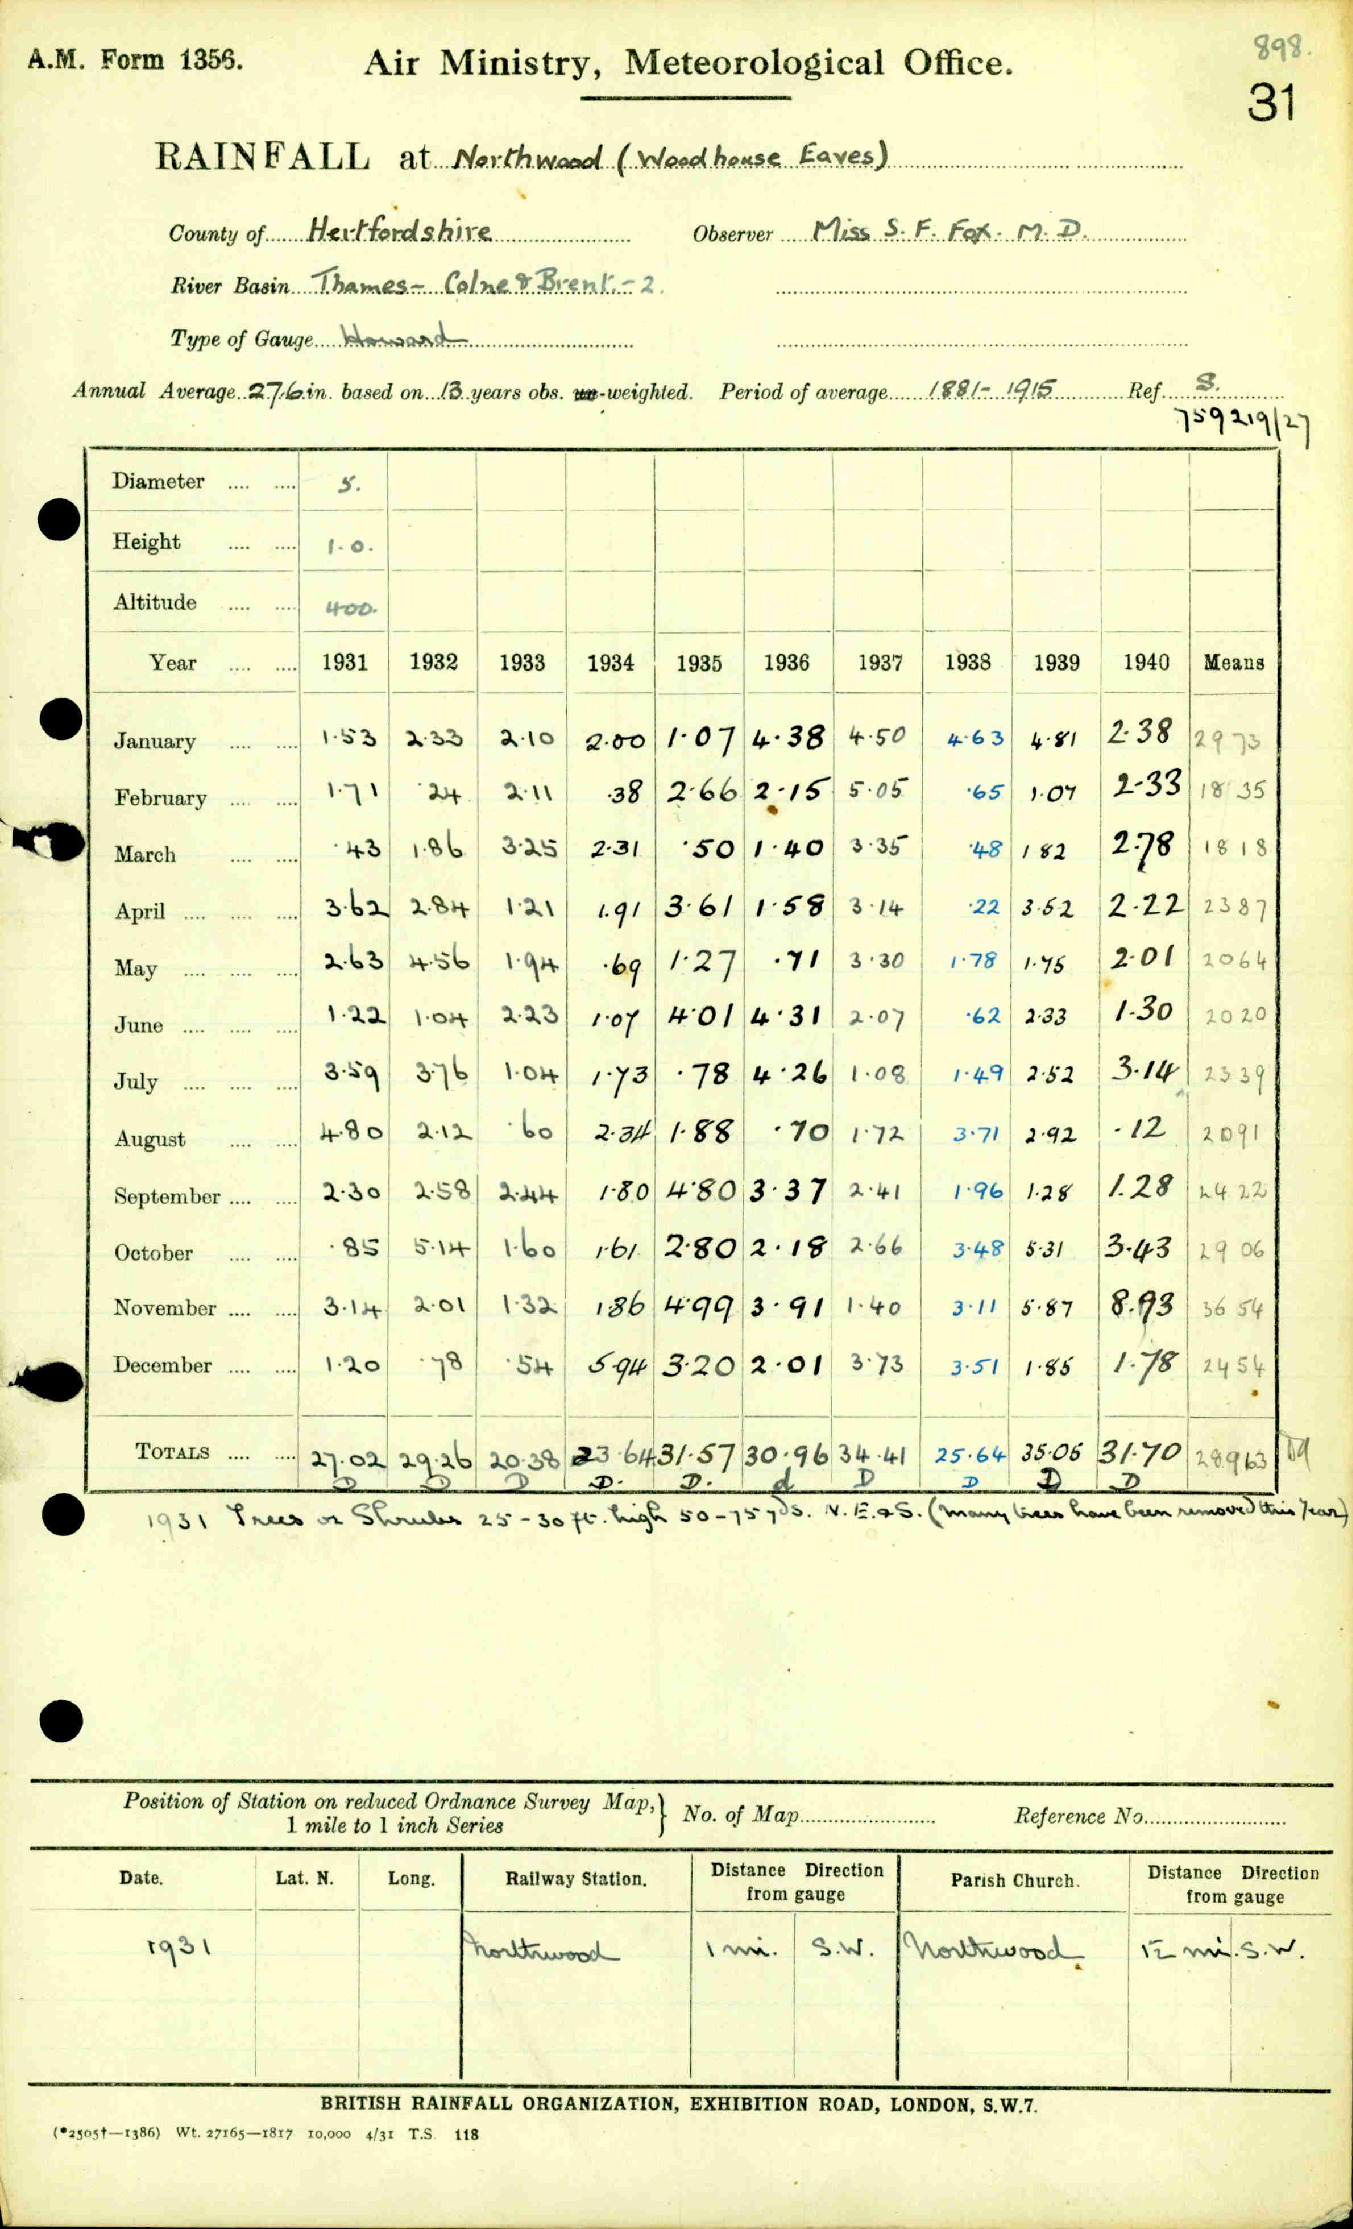 898.
A.M. Form 1356. Air Ministry, Meteorological Office.
31
RAINFALL at Northwood (Woodhouse Eaves)
County of Hertfordshire Observer Miss S. F. Fox. M. D.
River Basin Thames - Colne & Brent. - 2.
Type of Gauge Howard
Annual Average 27.6 in. based on 13 years obs. un-weighted. Period of average 1881 - 1915 Ref. S.
759219/27
Diameter 5.
Height 1.0.
Altitude 400.
Year 1931 1932 1933 1934 1935 1936 1937 1938 1939 1940 Means
January 1.53 2.33 2.10 2.00 1.07 4.38 4.50 4.63 4.81 2.38 29 73
February 1.71 .24 2.11 .38 2.66 2.15 5.05 .65 1.07 2.33 18 35
March .43 1.86 3.25 2.31 .50 1.40 3.35 .48 1 82 2.78 18 18
April 3.62 2.84 1.21 1.91 3.61 1.58 3.14 .22 3.52 2.22 23 87
May 2.63 4.56 1.94 .69 1.27 .71 3.30 1.78 1.75 2.01 20 64
June 1.22 1.04 2.23 1.07 4.01 4.31 2.07 .62 2.33 1.30 20 20
July 3.59 3.76 1.04 1.73 .78 4.26 1.08 1.49 2.52 3.14 23 39
August 4.80 2.12 .60 2.34 1.88 .70 1.72 3.71 2.92 .12 20 91
September 2.30 2.58 2.44 1.80 4.80 3.37 2.41 1.96 1.28 1.28 24 22
October .85 5.14 1.60 1.61 2.80 2.18 2.66 3.48 5.31 3.43 29 06
November 3.14 2.01 1.32 1.86 4.99 3.91 1.40 3.11 5.87 8.93 36 54
December 1.20 .78 .54 5.94 3.20 2.01 3.73 3.51 1.85 1.78 24 54
TOTALS 27.02 29.26 20.38 23.64 31.57 30.96 34.41 25.64 35.05 31.70 28.963
D D D D. D. d D D D D
1931 Trees or Shrubs 25 - 30 ft. high 50 - 75 yds. N. E. & S. (Many trees have been removed this year)
Position of Station on reduced Ordnance Survey Map, } No. of Map Reference No.
1 mile to 1 inch Series
Date. Lat. N. Long. Railway Station. Distance Direction from gauge Parish Church. Distance Direction from gauge
1931 Northwood 1 mi. S.W. Northwood mi. S.W.
BRITISH RAINFALL ORGANIZATION, EXHIBITION ROAD, LONDON, S.W.7.
(*2505†—1386) Wt. 27165—1817 10,000 4/31 T.S. 118